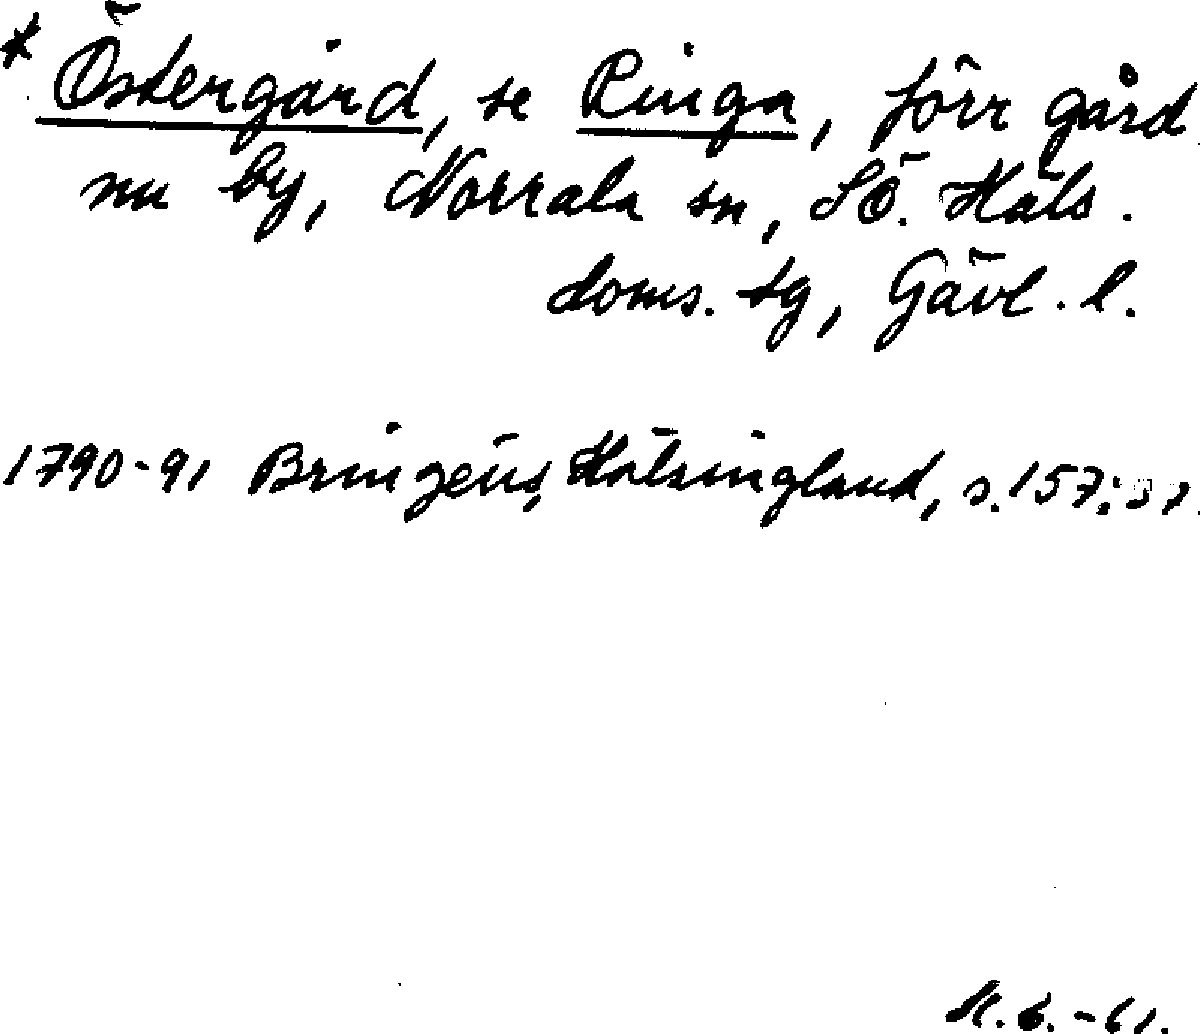 * Östergård, se Ringa, förr gård
nu by, Norrala sn, SÖ. Häls.
doms. sg, Gävl. l.
1790-91 Bringéus, Hälsingland, s. 157: